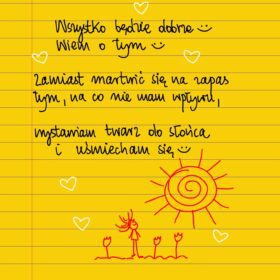 Wszystko będzie dobrze
Wiem o tym
Zamiast martwić się na zapas
tym, na co nie mam wpływu,
wystawiam twarz do słońca
i uśmiecham się